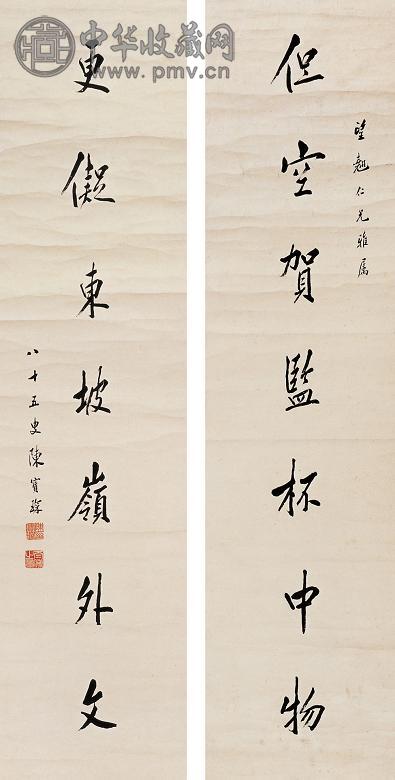 中华收藏网
www.pmv.cn
望翹仁兄雅属
但空賀監杯中物
更儗東坡嶺外文
八十五叟陳寶琛